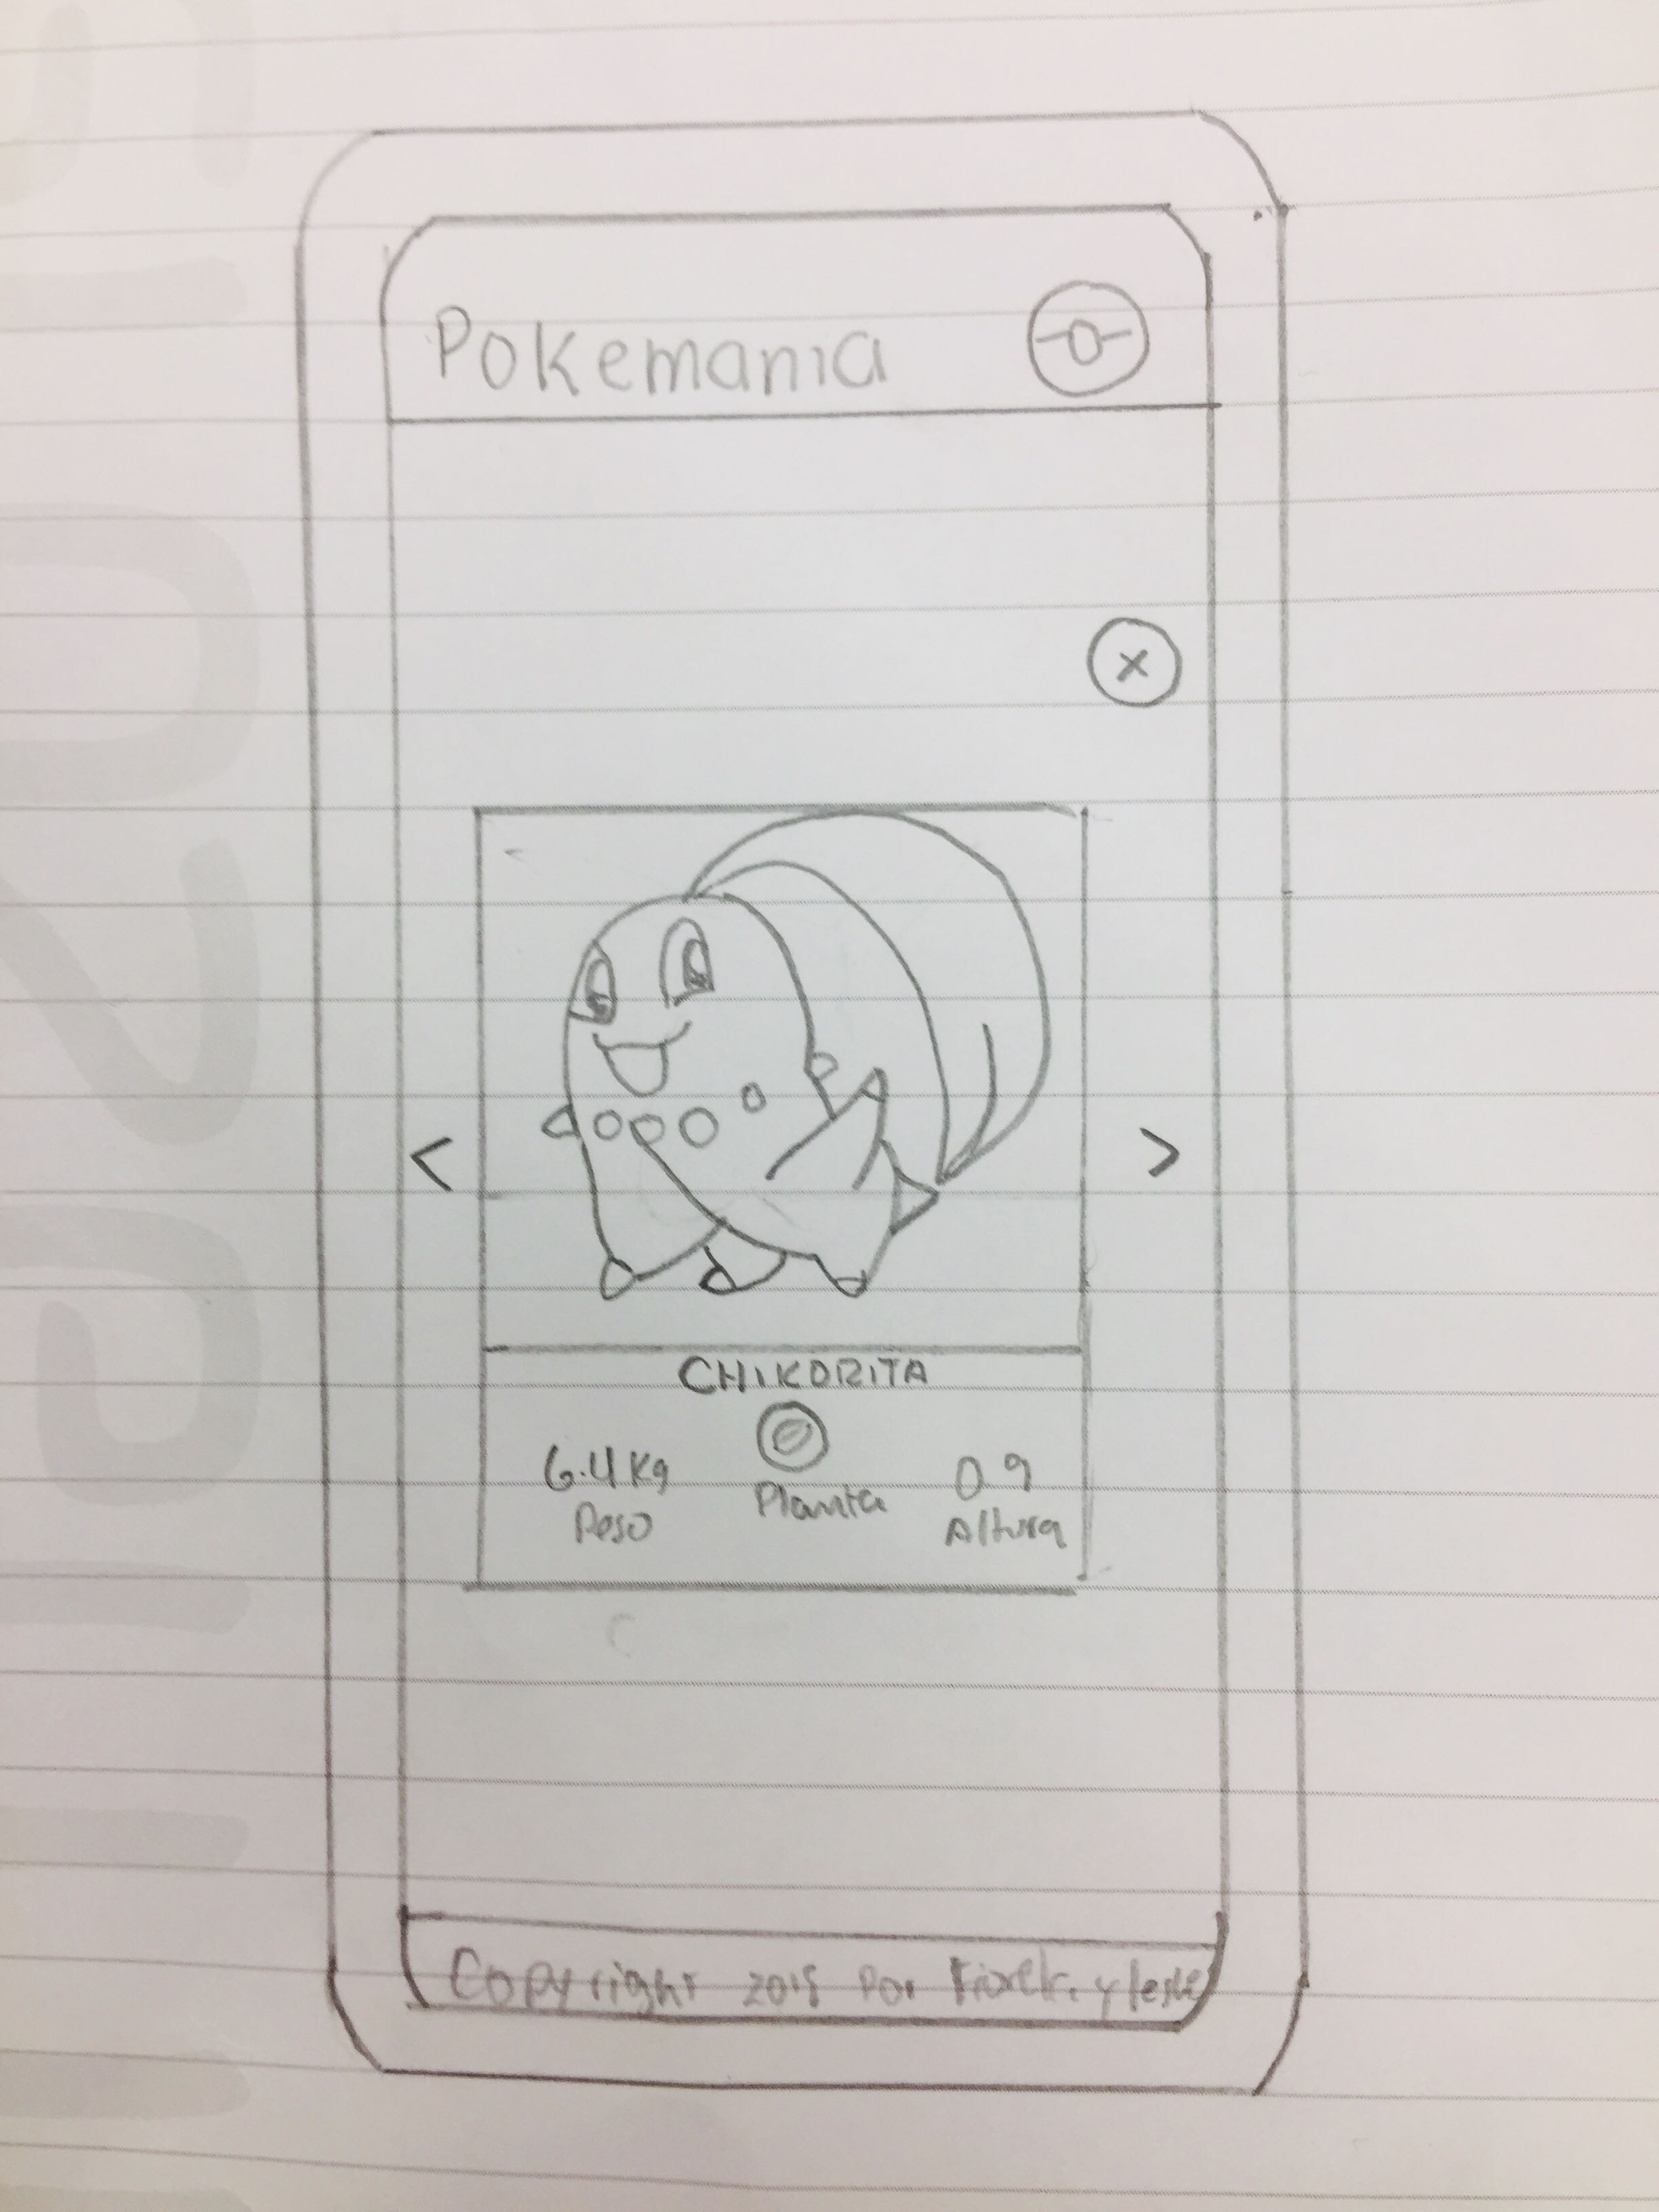 Pokemania
x
< >
CHIKORITA
6.4 Kg 0 9
Peso Planta Altura
Copyright 2018 Por y leslie